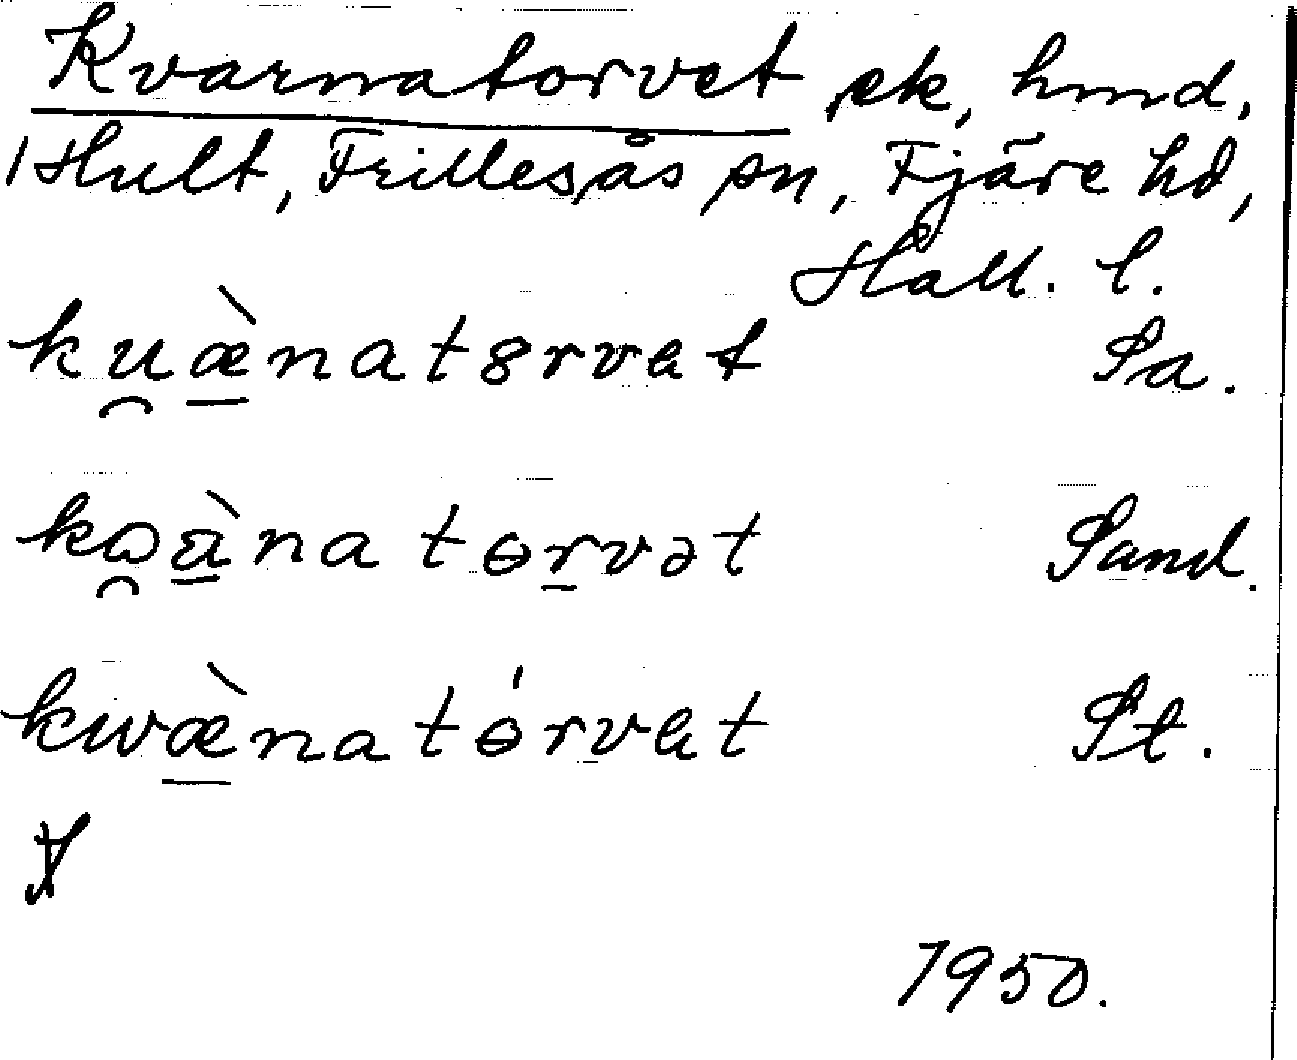 Kvarnatorvet, sk, hmd,
1 Hult, Frillesås sn, Fjäre hd,
Hall. l.
ku̯æ̱̀natɞrvet Sa.
kɷ̯à̱natɵṟvət Sand.
kwæ̱̀natɵ́rvet St.
1950.